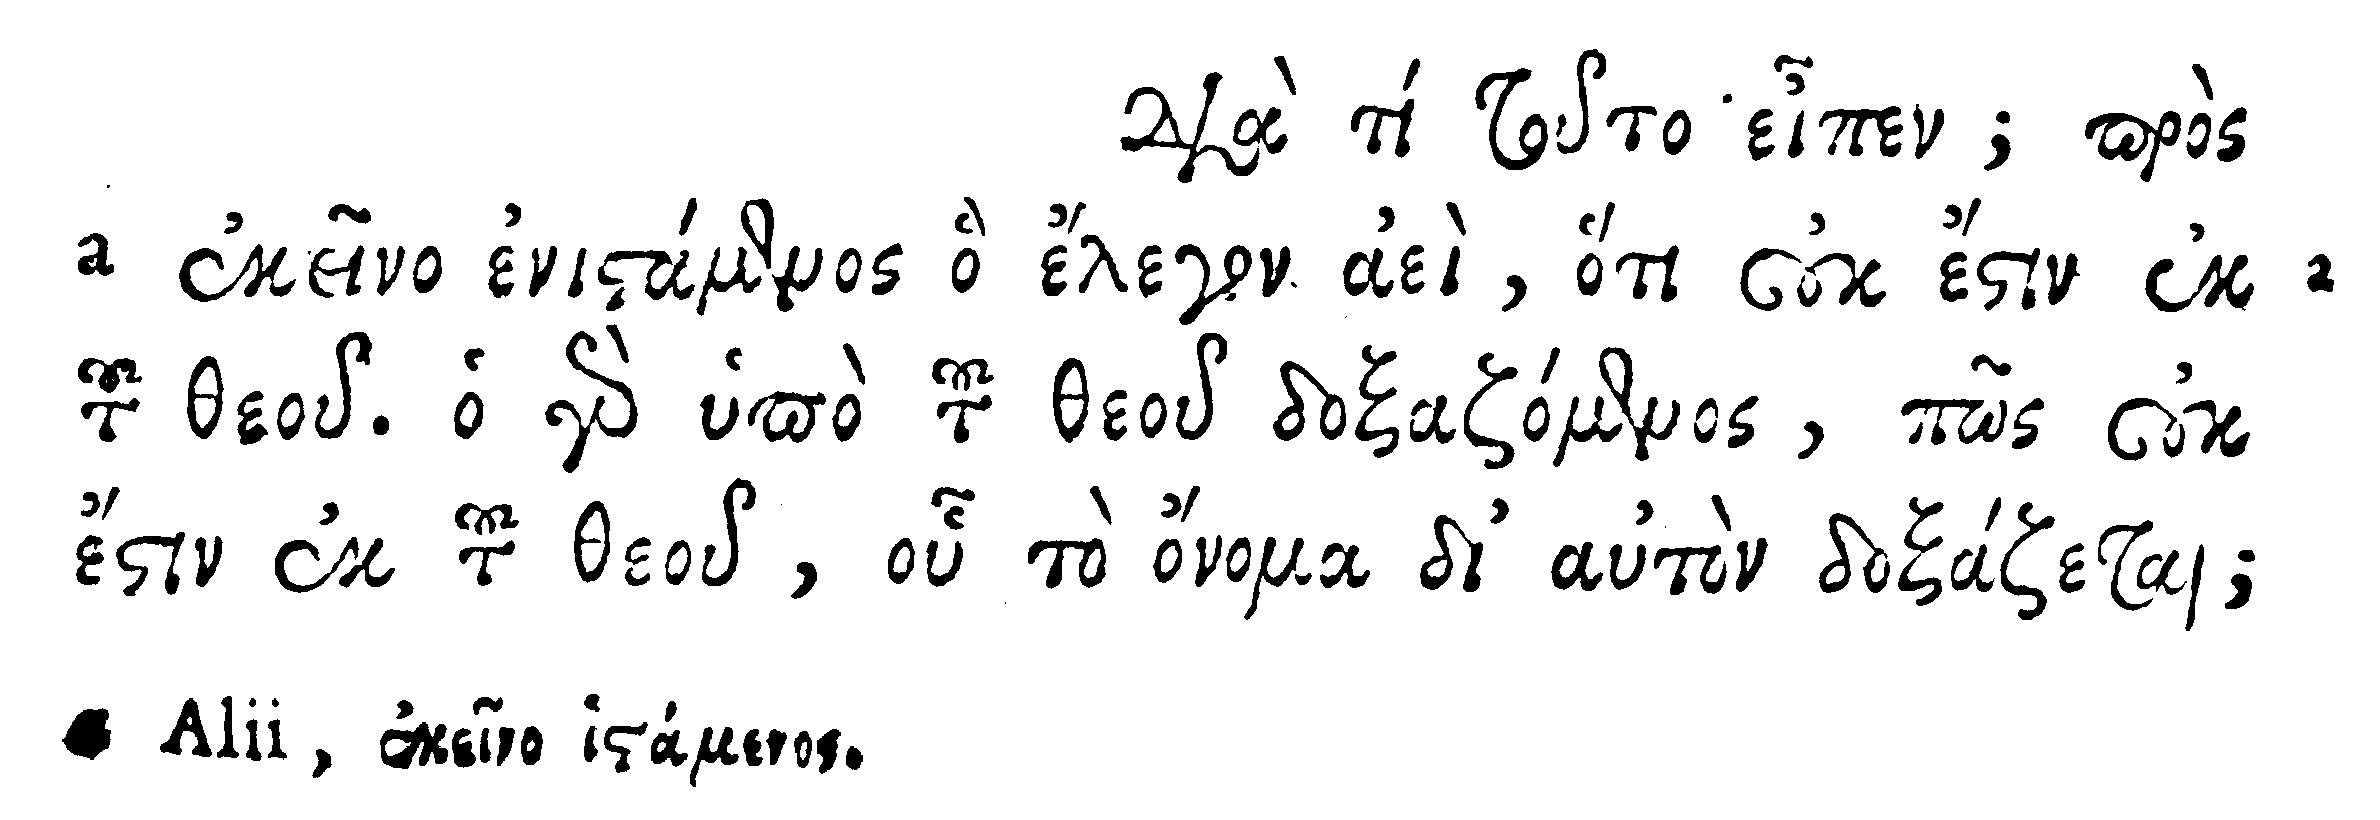 Διὰ τί τοῦτο εἶπεν; πρὸς
a ἐκεῖνο ἐνιστάμενος ὃ ἔλεγον ἀεὶ, ὅτι οὐκ ἔστιν ἐκ a
τοῦ θεοῦ. ὁ γὰρ ὑπὸ τοῦ θεοῦ δοξαζόμενος, πῶς οὐκ
ἔστιν ἐκ τοῦ θεοῦ, οὗ τὸ ὄνομα δι' αὐτὸν δοξάζεται;
Alii, ἐκεῖνο ἱστάμενος.